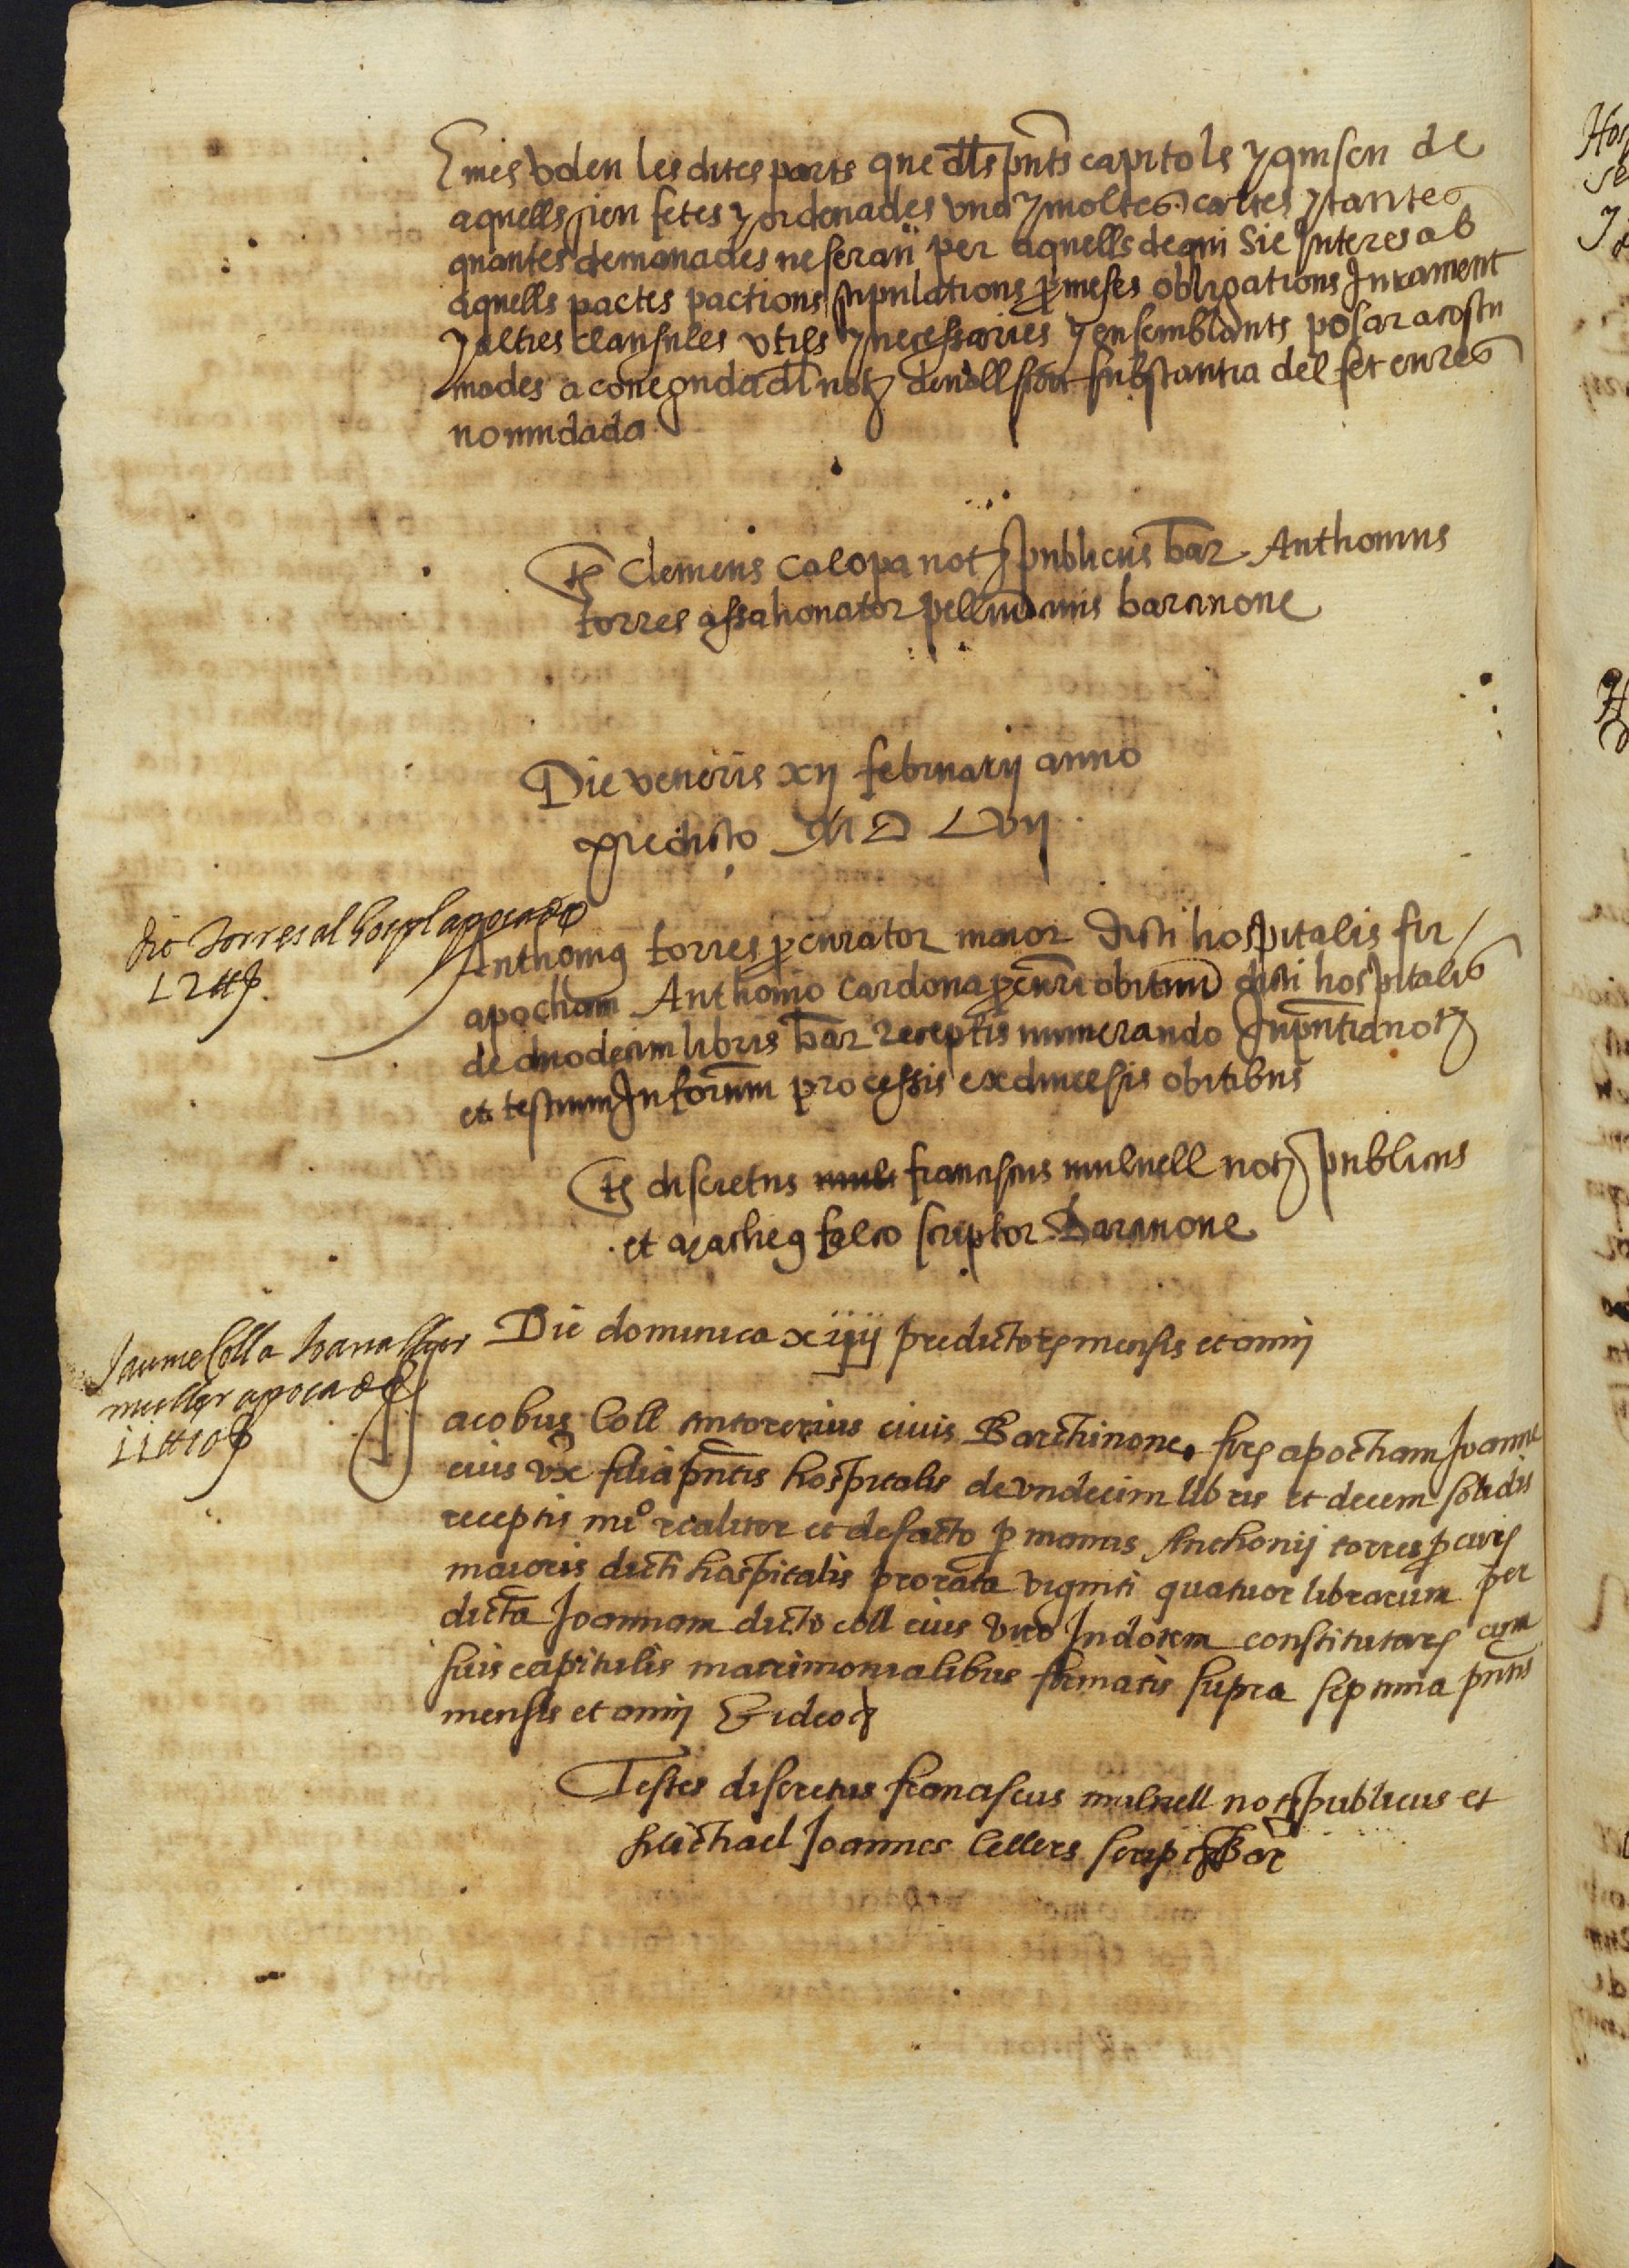 E mes volen les dites parts que dls pnts capitols y quiscu de
aquells sien fetes y ordenades una y moltes cartes y tantes
quantes demanades ne seran per aquells de qui sie interes ab
aquells pactes pactions stipulations pmeses obligations Jurament
y altres clausules utils y necessaries y en semblants posar acostu
mades a coneguda dl not del vll scrit substantia del fet en res
no mudada
ts Clemens Calopa not publicus bar Anthonius
torres assahonator pellium civis barcinone
Die veneris xij februarij anno
predicto M D Lvij
Torres al hospl apoca de
12 ₶
Anthonius torres pcurator maior dicti hospitalis fir
apocham Anthonio Cardona pcuri obituum dicti hospitalis
de duodecim libris bar receptis numerando In pntia not
et testium Inforum processis ex diversis obitibus
ts discretus franciscus mulnell not publicus
et falco scriptor Barcinone
Die dominica xiiij predictors mensis et anni
Jaume Coll a Joana
muller apoca de
11 ₶ 10
Jacobus Coll civis Barchinone firs apocham Joanne
eius ux filia pntis hospitalis de undecim libris et decem solidis
receptis mo realiter et de facto p manus Anthonij torres pcuris
maioris dicti hospitalis prorata viginti quatuor librarum per
dicta Joannam dicto coll eius viro In dotem constitutars cum
suis capitulis matrimonialibus firmatis supra septima pntis
mensis et anni Et ideo
Testes discretus franciscus mulnell not publicus et
Michael Joannes Cellers script Bar